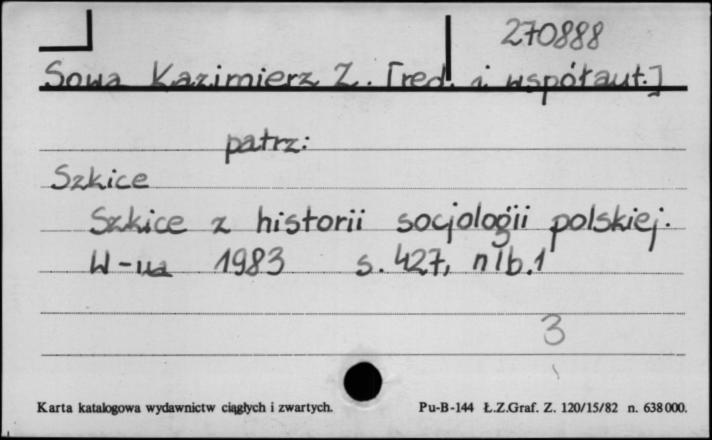 270888
Sowa Kazimierz Z. [red. i współaut.]
patrz:
Szkice
Szkice z historii socjologii polskiej.
W-wa 1983 s. 427, nlb.1
3
Karta katalogowa wydawnictw ciągłych i zwartych. Pu-B-144 Ł.Z.Graf. Z. 120/15/82 n. 638000.